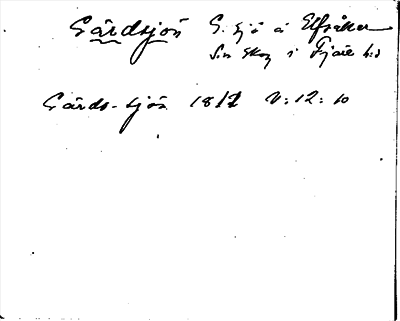 Gårdsjön G. sjö å Elfsåker
s:n skog i Fjäre h:d
Gårds-sjön 1812 V:12:10